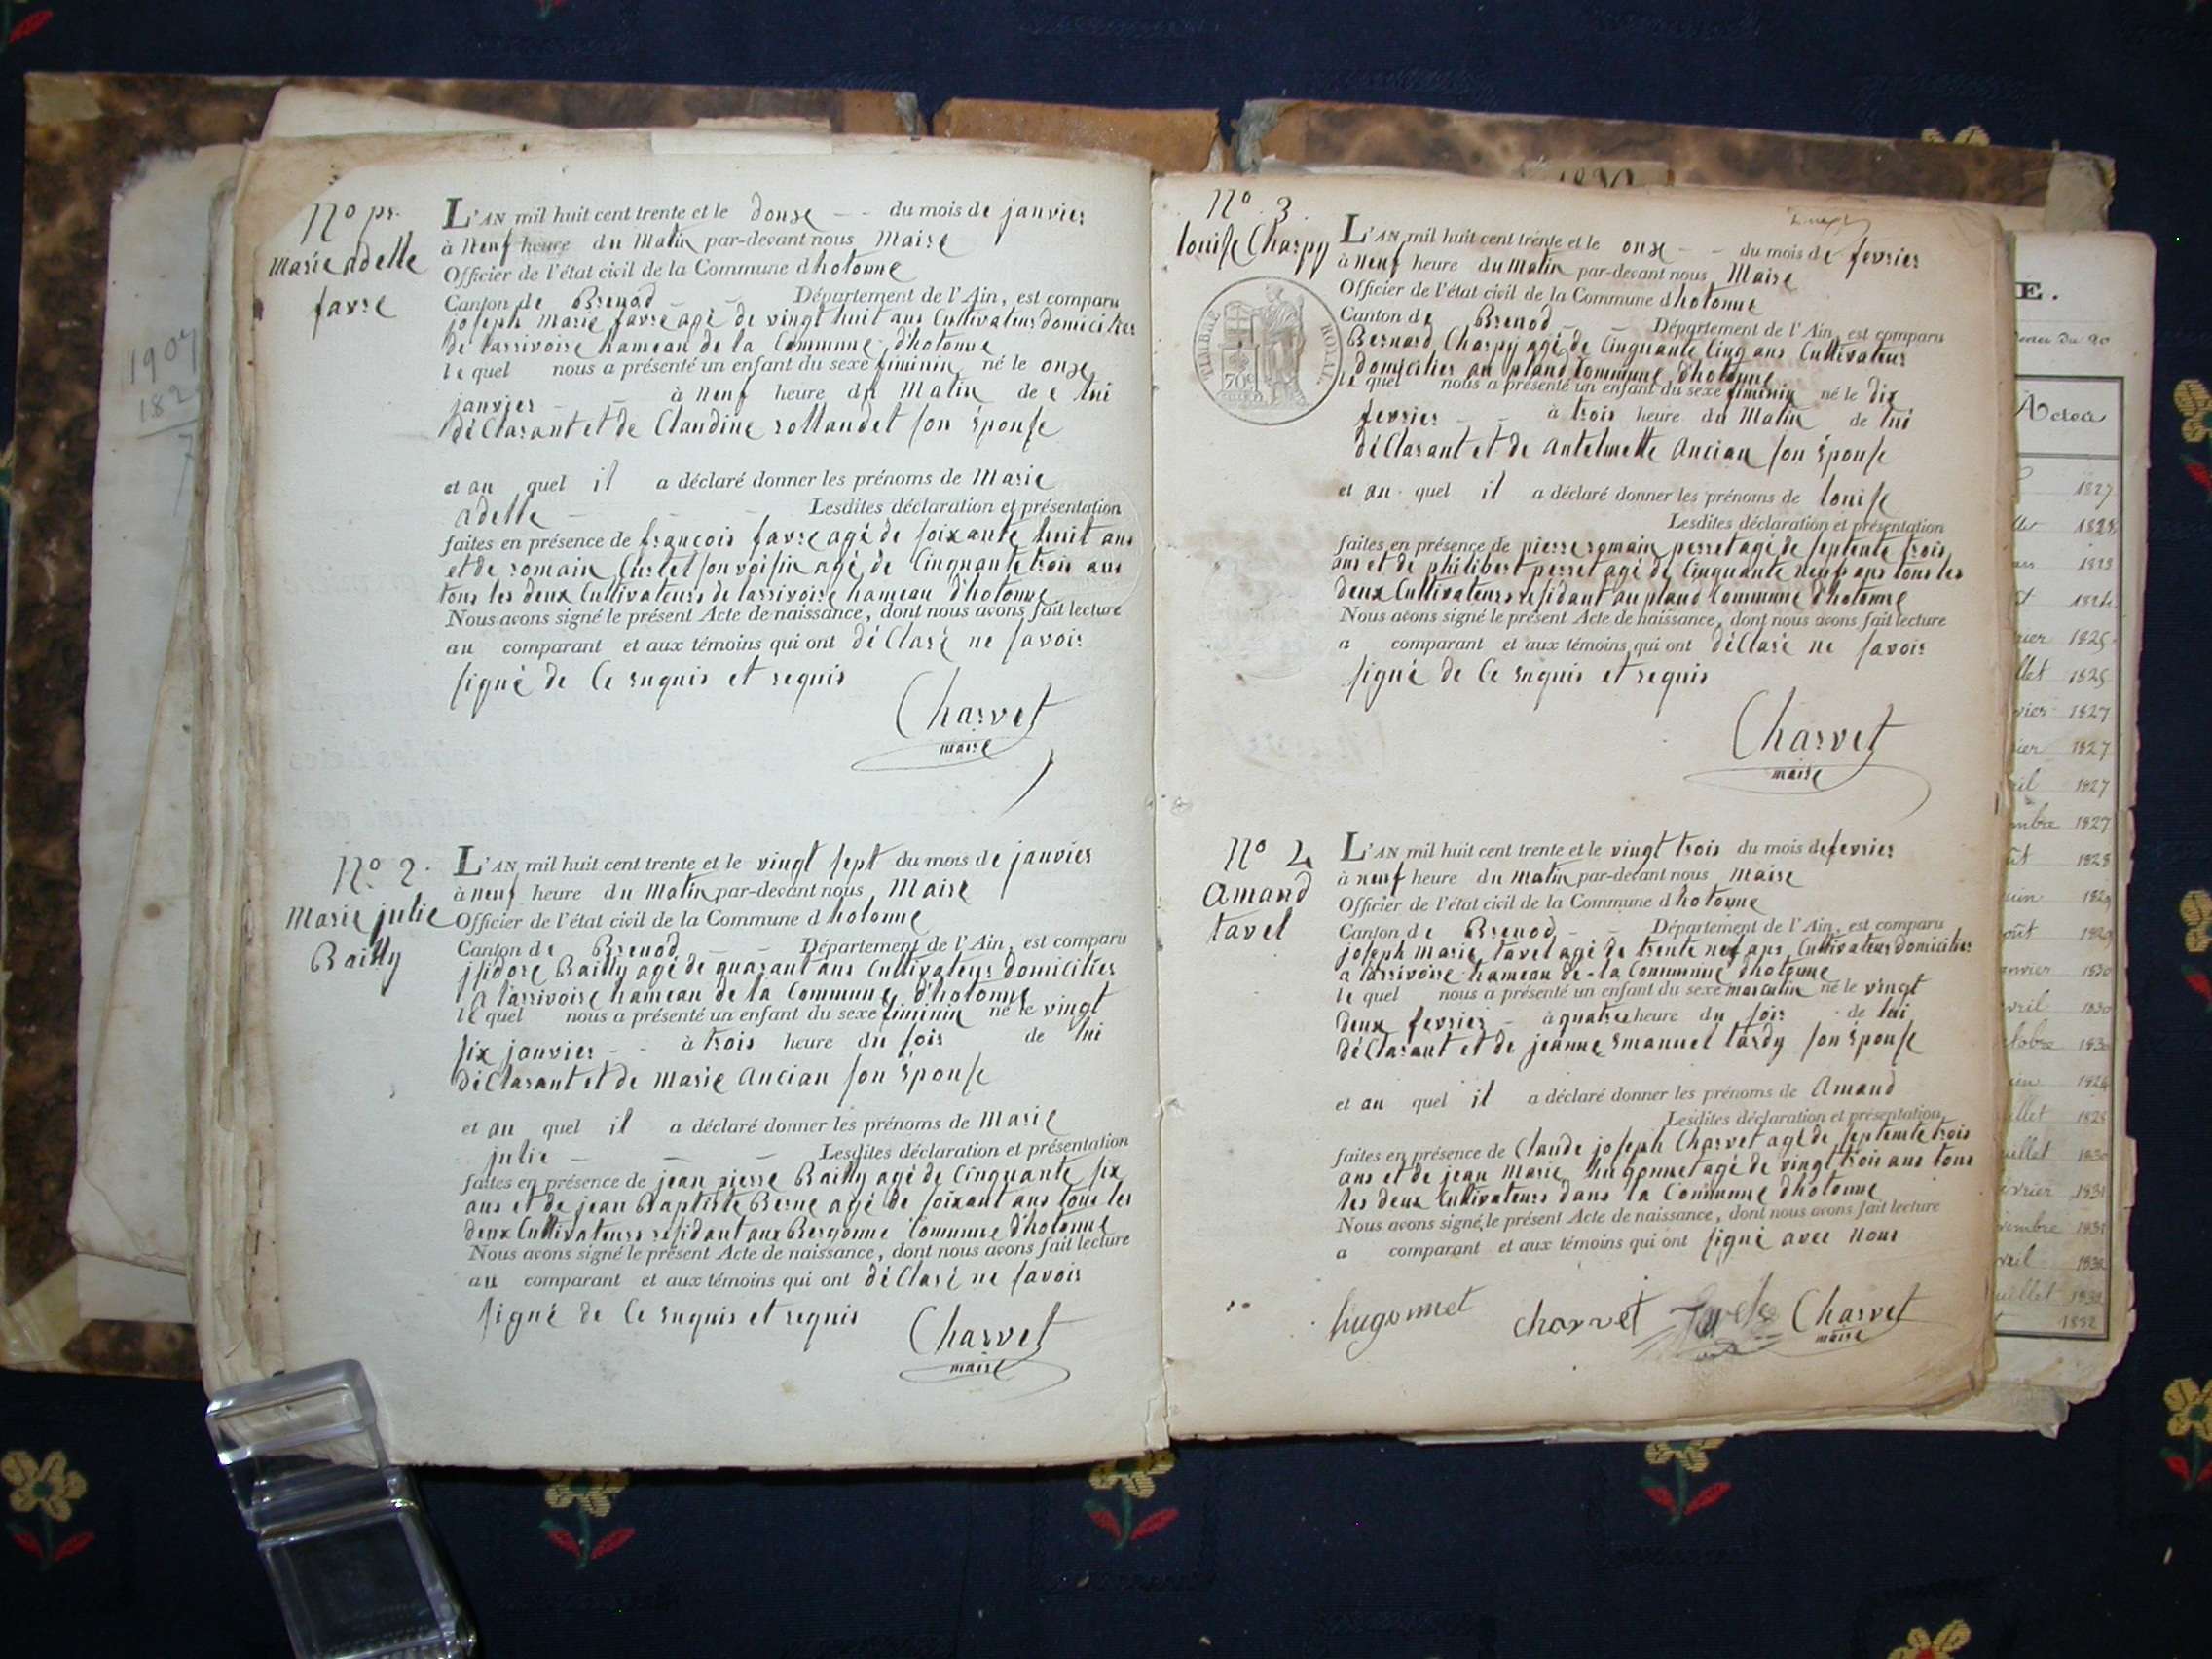 1907
182
7
No pr.
Marie adelle
favre
L'AN mil huit cent trente et le donse - - du mois de janvier
à neuf heure du Matin par-devant nous Maire
Officier de l'état civil de la Commune d'hotonne
Canton de Brenod - - Département de l'Ain, est comparu
joseph Marie favre agé de vingt huit ans Cultivateur domicilier
de larrivoire hameau de la Commune d'hotonne
le quel nous a présenté un enfant du sexe féminin né le onse
janvier - - à neuf heure du Matin de lui
déClarant et de Claudine rollandet son épouse
et au quel il a déclaré donner les prénoms de Marie
adelle - - Lesdites déclaration et présentation
faites en présence de françois favre agé de soixante huit ans
et de romain Curtet son voisin agé de Cinquante trois ans
tous les deux Cultivateurs de larrivoire hameau d'hotonne
Nous avons signé le présent Acte de naissance, dont nous avons fait lecture
au comparant et aux témoins qui ont déClaré ne savoir
signé de Ce enquis et requis
Charvet
maire
No 2.
Marie julie
Bailly
L'AN mil huit cent trente et le vingt sept du mois de janvier
à neuf heure du Matin par-devant nous Maire
Officier de l'état civil de la Commune d hotonne
Canton de Brenod - - Département de l'Ain, est comparu
jsidore Bailly agé de quarant ans Cultivateur domicilier
a larrivoire hameau de la Commune d'hotonne
le quel nous a présenté un enfant du sexe féminin né le vingt
six janvier - - à trois heure du soir de lui
déClarant et de Marie Ancian son épouse
et au quel il a déclaré donner les prénoms de Marie
julie - - Lesdites déclaration et présentation
faites en présence de jean pierre Bailly agé de Cinquante six
ans et de jean Baptiste Berne agé de soixant ans tous les
deux Cultivateurs résidant aux Bergonne Commune d'hotonne
Nous avons signé le présent Acte de naissance, dont nous avons fait lecture
au comparant et aux témoins qui ont déClaré ne savoir
signé de Ce enquis et requis
Charvet
maire
No. 3.
louise Charpy
TIMBRE ROYAL
70c
L'AN mil huit cent trente et le onse - - du mois de fevrier
à neuf heure du Matin par-devant nous Maire
Officier de l'état civil de la Commune d hotonne
Canton de Brenod - - Département de l'Ain, est comparu
Bernard Charpy agé de Cinquante Cinq ans Cultivateur
domicilier au pland Commune d'hotonne
le quel nous a présenté un enfant du sexe féminin né le dix
fevrier - - à trois heure du Matin de lui
déClarant et de antelmette Ancian son épouse
et au quel il a déclaré donner les prénoms de louise
Lesdites déclaration et présentation
faites en présence de pierre romain perret agé de septente trois
ans et de philibert perret agé de Cinquante neuf ans tous les
deux Cultivateurs résidant au pland Commune d'hotonne
Nous avons signé le présent Acte de naissance, dont nous avons fait lecture
a comparant et aux témoins qui ont déClaré ne savoir
signé de Ce enquis et requis
Charvet
maire
No 4
Amand
tavel
L'AN mil huit cent trente et le vingt trois du mois de fevrier
à neuf heure du Matin par-devant nous Maire
Officier de l'état civil de la Commune d hotonne
Canton de Brenod - - Département de l'Ain, est comparu
joseph Marie tavel agé de trente nef ans Cultivateur domicilier
a larrivoire hameau de la Commune d'hotonne
le quel nous a présenté un enfant du sexe masculin né le vingt
deux fevrier - à quatre heure du soir de lui
déClarant et de jeanne Emanuel tardy son épouse
et au quel il a déclaré donner les prénoms de Amand
Lesdites déclaration et présentation
faites en présence de Claude joseph Charvet agé de septente trois
ans et de jean Marie hugonnet agé de vingt trois ans tous
les deux Cultivateurs dans la Commune d'hotonne
Nous avons signé le présent Acte de naissance, dont nous avons fait lecture
a comparant et aux témoins qui ont signé avec Nous
hugonnet charvet Charvet
maire
E.
du 20
Actes
1827
1828
1823
1824
1825
llet 1825
vier 1827
ier 1827
ril 1827
mbre 1827
ût 1828
uin 1829
oût 1829
anvier 1830
vril 1830
ctobre 1830
1824
uillet 1828
uillet 1830
évrier 1831
vembre 1831
vril 1832
uillet 1832
1832